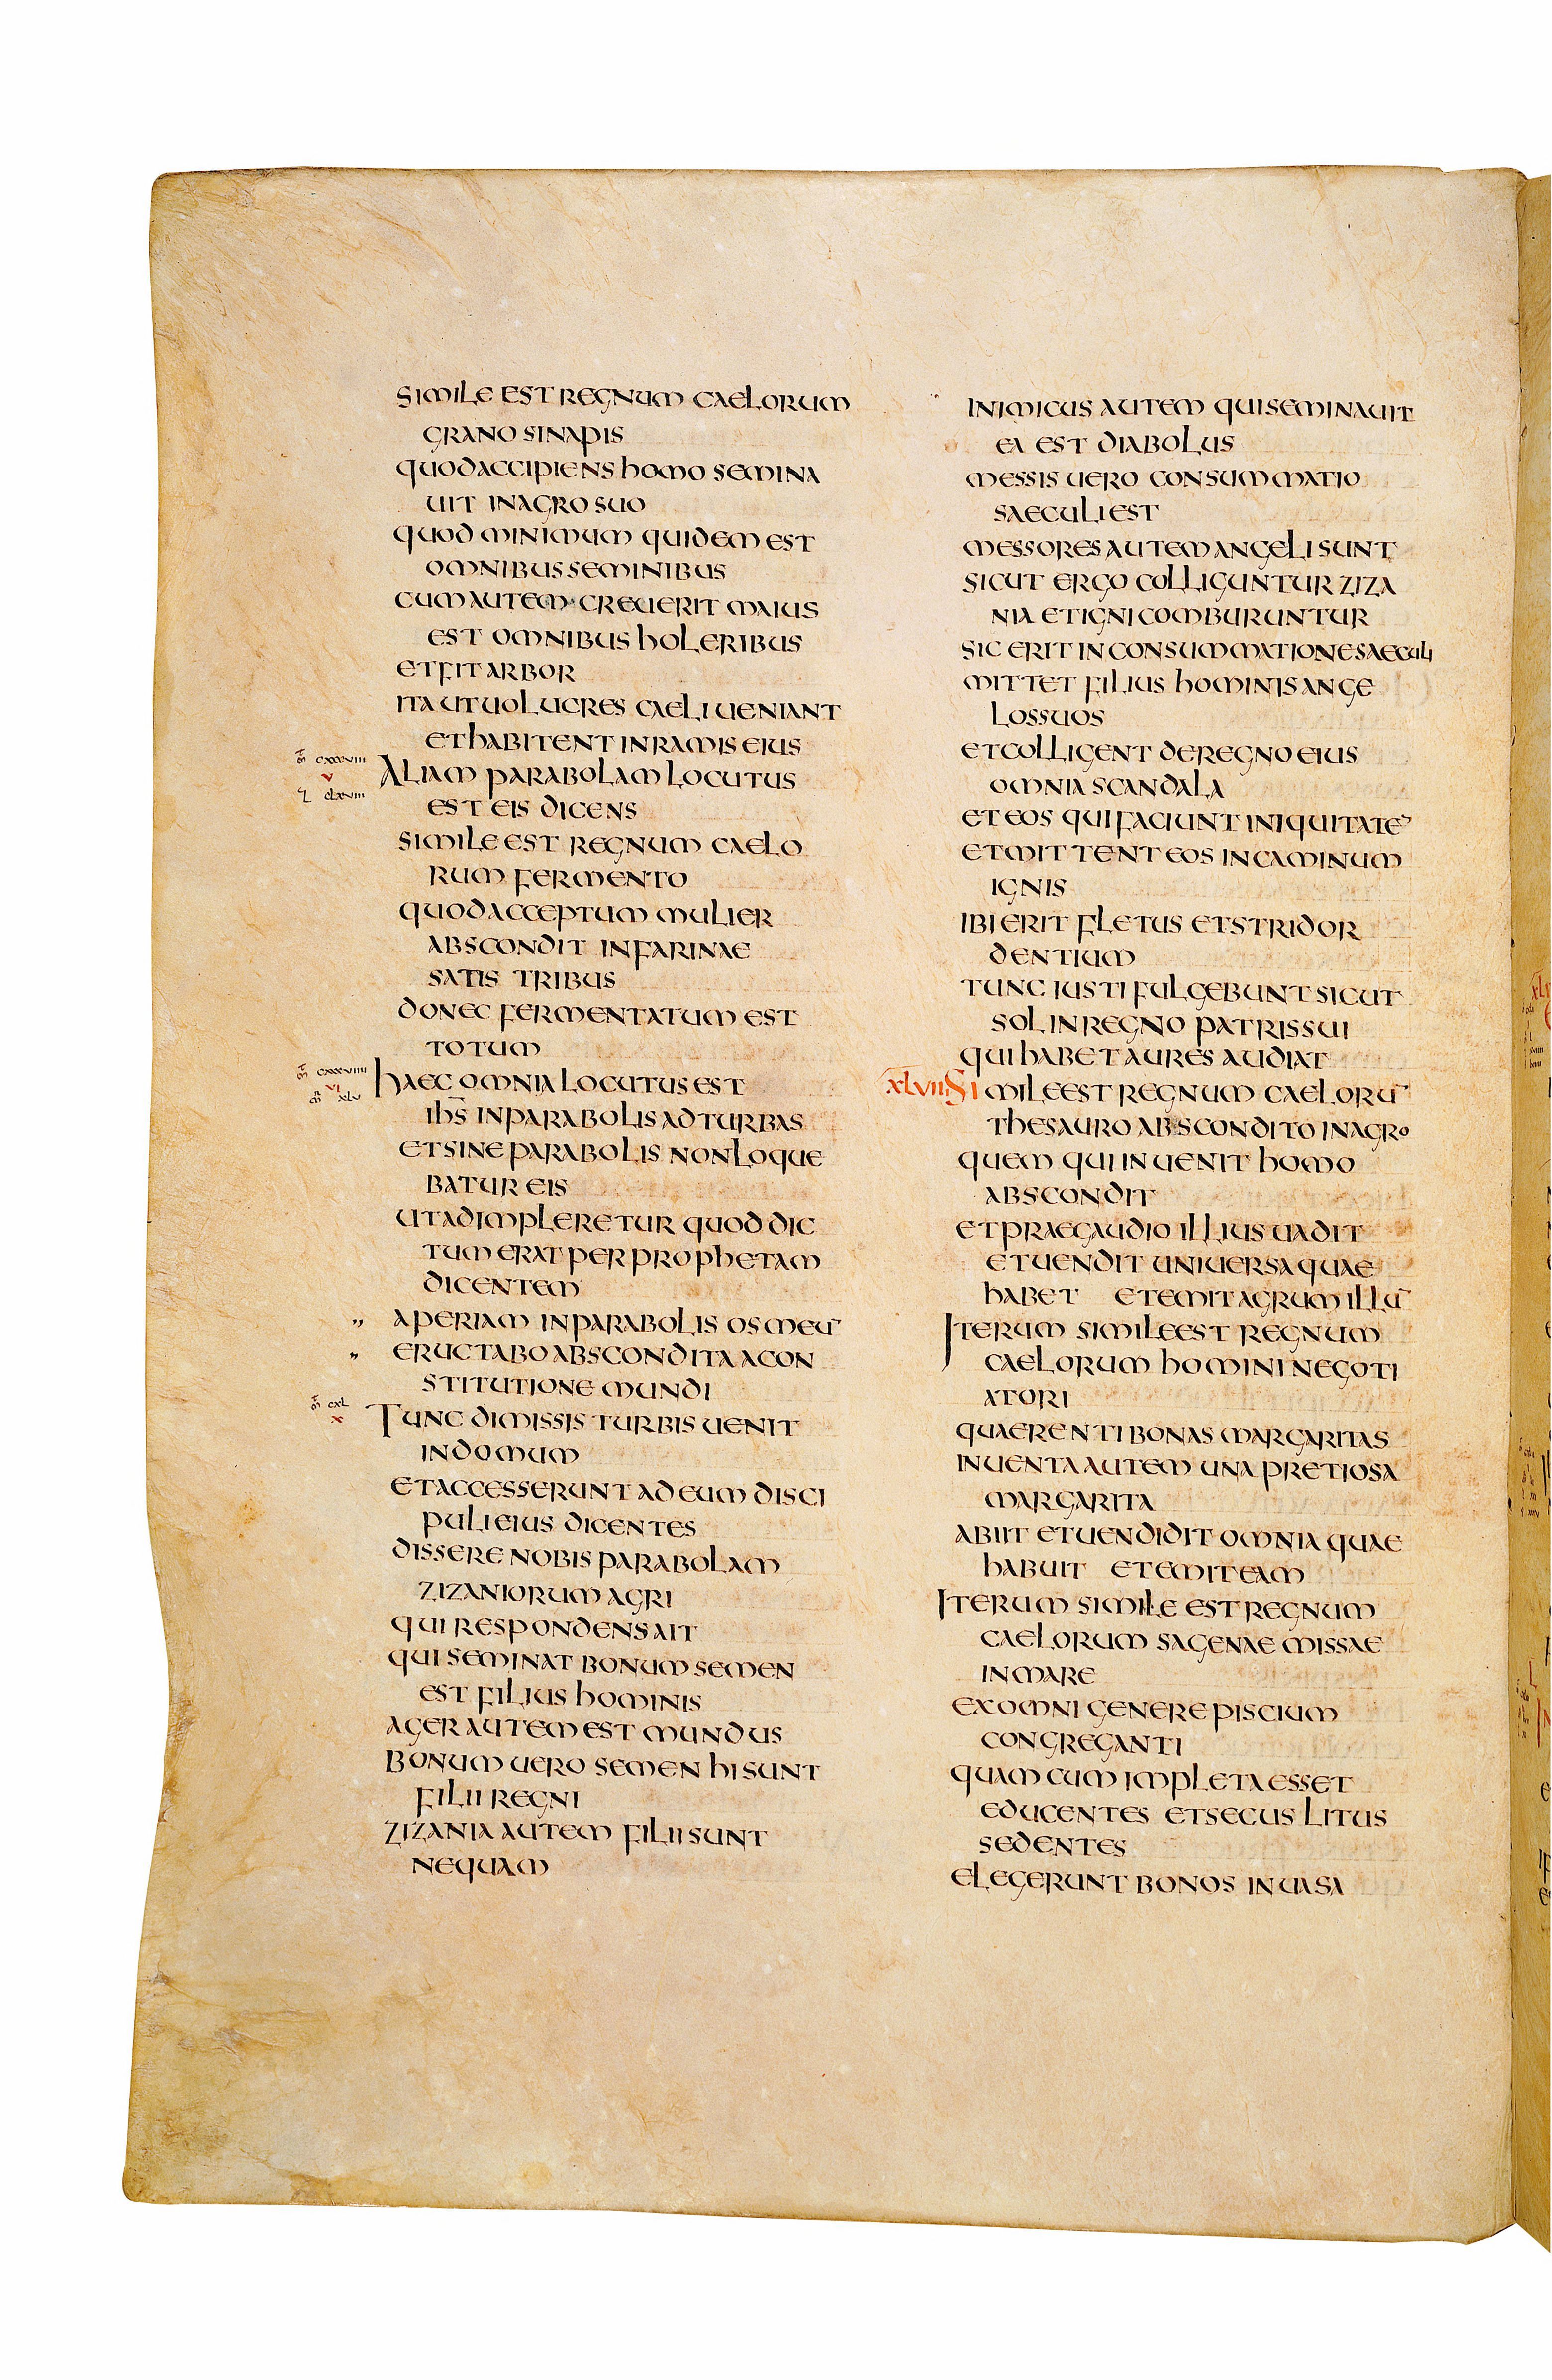 SIMILE EST REGNUM CAELORUM
GRANO SINAPIS
QUOD ACCIPIENS HOMO SEMINA
UIT IN AGRO SUO
QUOD MINIMUM QUIDEM EST
OMNIBUS SEMINIBUS
CUM AUTEM CREUERIT MAIUS
EST OMNIBUS HOLERIBUS
ET FIT ARBOR
ITA UT UOLUCRES CAELI UENIANT
ET HABITENT IN RAMIS EIUS
ALIAM PARABOLAM LOCUTUS
EST EIS DICENS
SIMILE EST REGNUM CAELO
RUM FERMENTO
QUOD ACCEPTUM MULIER
ABSCONDIT IN FARINAE
SATIS TRIBUS
DONEC FERMENTATUM EST
TOTUM
HAEC OMNIA LOCUTUS EST
IHS̄ IN PARABOLIS AD TURBAS
ET SINE PARABOLIS NON LOQUE
BATUR EIS
UT ADIMPLERETUR QUOD DIC
TUM ERAT PER PROPHETAM
DICENTEM
,, APERIAM IN PARABOLIS OS MEU̅
,, ERUCTABO ABSCONDITA A CON
STITUTIONE MUNDI
TUNC DIMISSIS TURBIS UENIT
IN DOMUM
ET ACCESSERUNT AD EUM DISCI
PULI EIUS DICENTES
DISSERE NOBIS PARABOLAM
ZIZANIORUM AGRI
QUI RESPONDENS AIT
QUI SEMINAT BONUM SEMEN
EST FILIUS HOMINIS
AGER AUTEM EST MUNDUS
BONUM UERO SEMEN HI SUNT
FILII REGNI
ZIZANIA AUTEM FILII SUNT
NEQUAM
INIMICUS AUTEM QUI SEMINAUIT
EA EST DIABOLUS
MESSIS UERO CONSUMMATIO
SAECULI EST
MESSORES AUTEM ANGELI SUNT
SICUT ERGO COLLIGUNTUR ZIZA
NIA ET IGNI COMBURUNTUR
SIC ERIT IN CONSUMMATIONE SAECULI
MITTET FILIUS HOMINIS ANGE
LOS SUOS
ET COLLIGENT DE REGNO EIUS
OMNIA SCANDALA
ET EOS QUI FACIUNT INIQUITATE̅
ET MITTENT EOS IN CAMINUM
IGNIS
IBI ERIT FLETUS ET STRIDOR
DENTIUM
TUNC IUSTI FULGEBUNT SICUT
SOL IN REGNO PATRIS SUI
QUI HABET AURES AUDIAT
XLVII SIMILE EST REGNUM CAELORU̅
THESAURO ABSCONDITO IN AGRO
QUEM QUI INUENIT HOMO
ABSCONDIT
ET PRAE GAUDIO ILLIUS UADIT
ET UENDIT UNIUERSA QUAE
HABET ET EMIT AGRUM ILLU̅
ITERUM SIMILE EST REGNUM
CAELORUM HOMINI NEGOTI
ATORI
QUAERENTI BONAS MARGARITAS
INUENTA AUTEM UNA PRETIOSA
MARGARITA
ABIIT ET UENDIDIT OMNIA QUAE
HABUIT ET EMIT EAM
ITERUM SIMILE EST REGNUM
CAELORUM SAGENAE MISSAE
IN MARE
EX OMNI GENERE PISCIUM
CONGREGANTI
QUAM CUM IMPLETA ESSET
EDUCENTES ET SECUS LITUS
SEDENTES
ELEGERUNT BONOS IN UASA